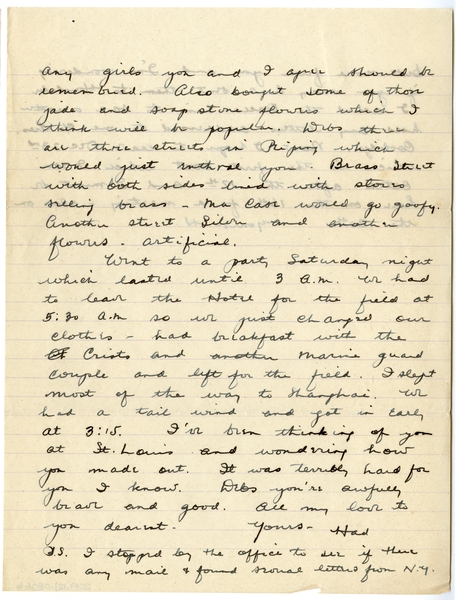 any girls you and I agree should be
remembered. Also bought some of those
jade and soap stone flowers which I
think will be popular. Debs there
are three streets in Peiping which
would just enthral you. Brass Street
with both sides lined with stores
selling brass - Ma Case would go goofy.
Another street Silver and another
flowers - artificial.
Went to a party Saturday night
which lasted until 3 A.M. We had
to leave the Hotel for the field at
5:30 A.M so we just changed our
clothes - had breakfast with the
Crists and another Marine guard
couple and left for the field. I slept
most of the way to Shanghai. We
had a tail wind and got in early
at 3:15. I've been thinking of you
at St. Louis and wondering how
you made out. It was terribly hard for
you I know. Debs you're awfully
brave and good. All my love to
you dearest. Yours - Had
P.S. I stopped by the office to see if there
was any mail & found several letters from N.Y.